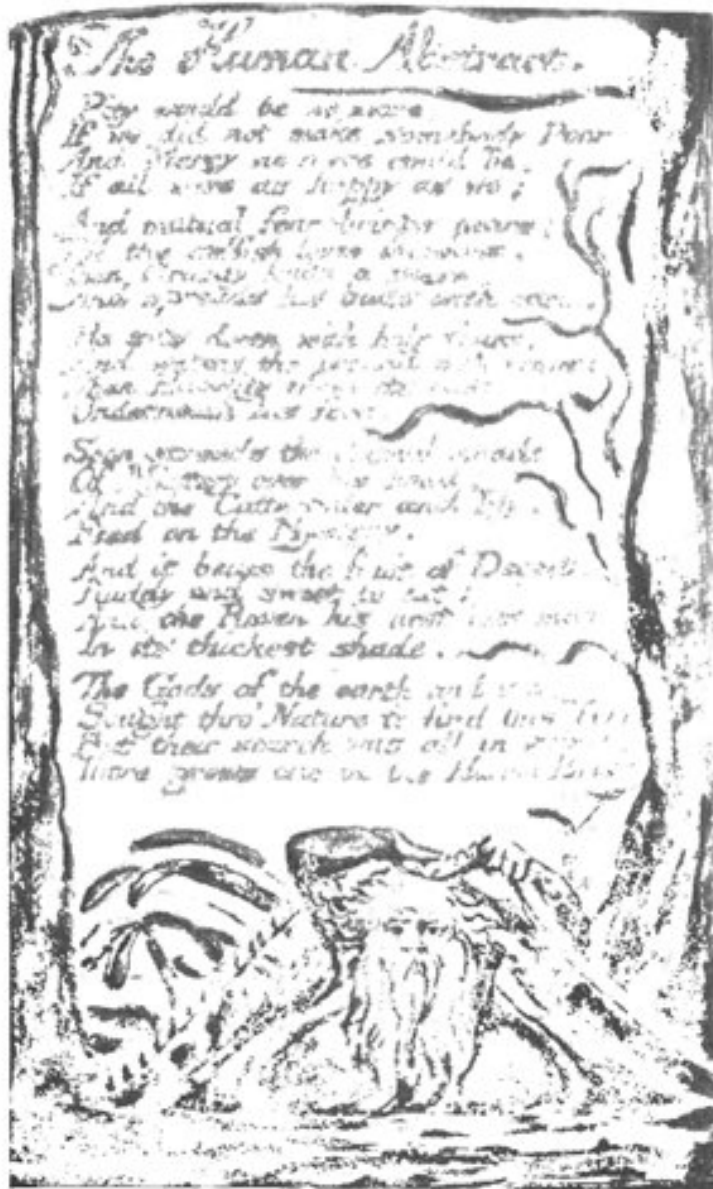 The Human Abstract.
Pity would be no more,
If we did not make somebody Poor
And Mercy no more could be,
If all were as happy as we;
And mutual fear brings peace;
Till the selfish loves increase.
Then Cruelty knits a snare
And spreads his baits with care.
He sits down with holy fears,
And waters the ground with tears
Then Humility takes its root
Underneath his foot.
Soon spreads the dismal shade
Of Mystery over his head;
And the Catterpiller and Fly,
Feed on the Mystery.
And it bears the fruit of Deceit,
Ruddy and sweet to eat;
And the Raven his nest has made
In its thickest shade.
The Gods of the earth and sea
Sought thro' Nature to find this Tree
But their search was all in vain
There grows one in the Human Brain